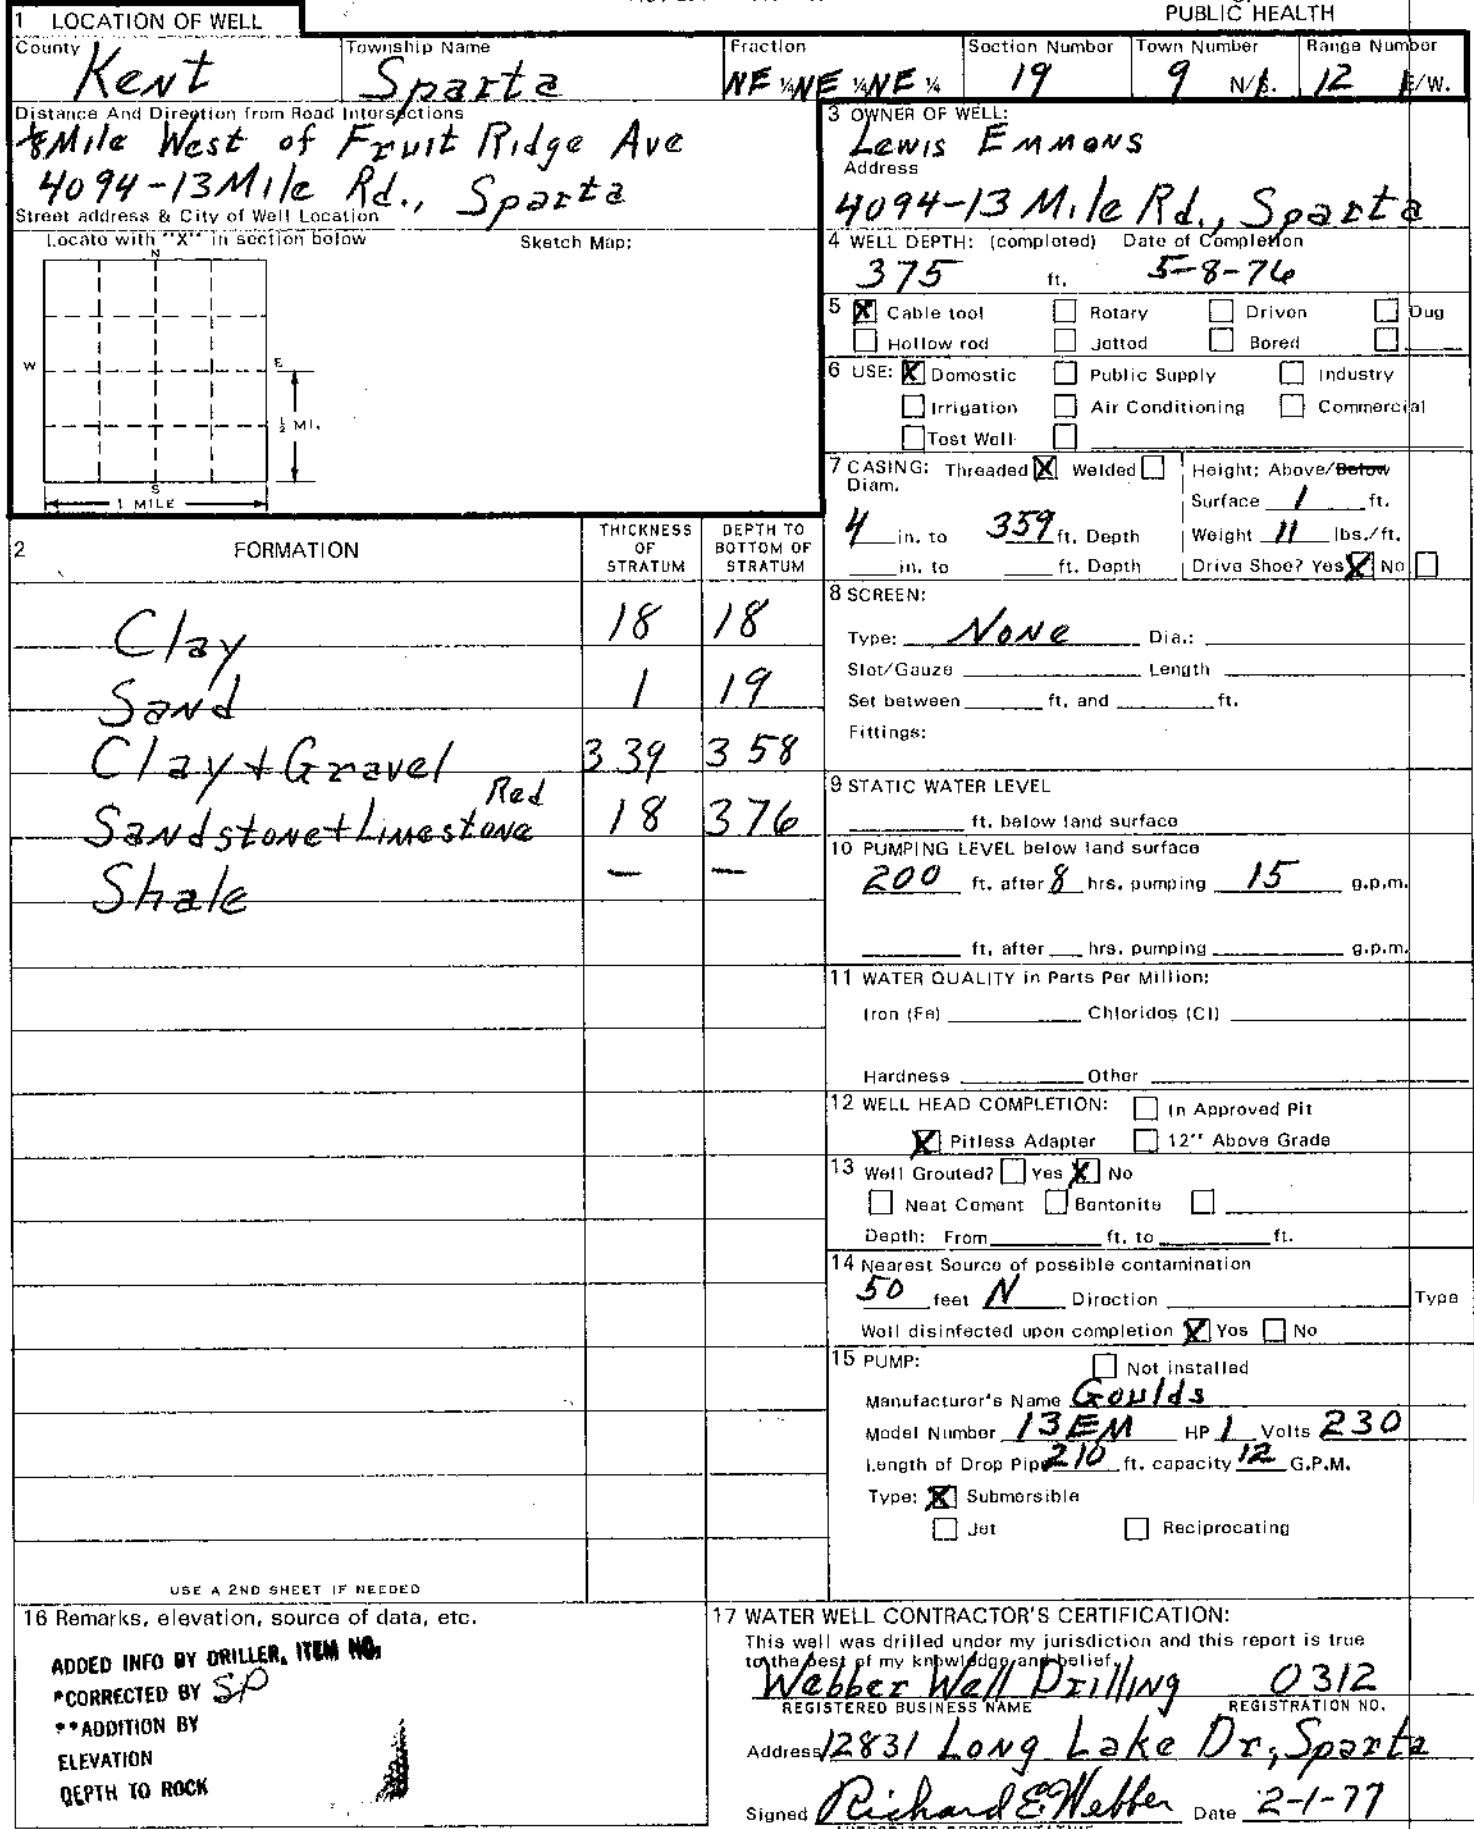 PUBLIC HEALTH
1 LOCATION OF WELL
County Kent
Township Name Sparta
Fraction NE ¼ NE ¼ NE ¼
Section Number 19
Town Number 9 N/S.
Range Number 12 E/W.
Distance And Direction from Road Intersections
⅛ Mile West of Fruit Ridge Ave
4094-13 Mile Rd., Sparta
Street address & City of Well Location
Locate with "X" in section below
Sketch Map:
N
W
E
½ MI.
S
1 MILE
3 OWNER OF WELL:
Lewis Emmons
Address
4094-13 Mile Rd., Sparta
4 WELL DEPTH: (completed) Date of Completion
375 ft. 5-8-76
5 X Cable tool Rotary Driven Dug
Hollow rod Jetted Bored
6 USE: X Domestic Public Supply Industry
Irrigation Air Conditioning Commercial
Test Well
7 CASING: Threaded X Welded
Diam.
4 in. to 359 ft. Depth
in. to ft. Depth
Height: Above/Below
Surface 1 ft.
Weight 11 lbs./ft.
Drive Shoe? Yes X No
2 FORMATION
THICKNESS OF STRATUM
DEPTH TO BOTTOM OF STRATUM
Clay 18 18
Sand 1 19
Clay + Gravel 339 358
Red
Sandstone + Limestone 18 376
Shale — —
USE A 2ND SHEET IF NEEDED
8 SCREEN:
Type: None Dia.:
Slot/Gauze Length
Set between ft. and ft.
Fittings:
9 STATIC WATER LEVEL
ft. below land surface
10 PUMPING LEVEL below land surface
200 ft. after 8 hrs. pumping 15 g.p.m.
ft. after hrs. pumping g.p.m.
11 WATER QUALITY in Parts Per Million:
Iron (Fe) Chlorides (Cl)
Hardness Other
12 WELL HEAD COMPLETION: In Approved Pit
X Pitless Adapter 12" Above Grade
13 Well Grouted? Yes X No
Neat Cement Bentonite
Depth: From ft. to ft.
14 Nearest Source of possible contamination
50 feet N Direction Type
Well disinfected upon completion X Yes No
15 PUMP: Not installed
Manufacturer's Name Goulds
Model Number 13EM HP 1 Volts 230
Length of Drop Pipe 210 ft. capacity 12 G.P.M.
Type: X Submersible
Jet Reciprocating
16 Remarks, elevation, source of data, etc.
ADDED INFO BY DRILLER, ITEM NO.
*CORRECTED BY SP
**ADDITION BY
ELEVATION
DEPTH TO ROCK
17 WATER WELL CONTRACTOR'S CERTIFICATION:
This well was drilled under my jurisdiction and this report is true
to the best of my knowledge and belief.
Webber Well Drilling 0312
REGISTERED BUSINESS NAME REGISTRATION NO.
Address 12831 Long Lake Dr, Sparta
Signed Richard E. Webber Date 2-1-77
AUTHORIZED REPRESENTATIVE